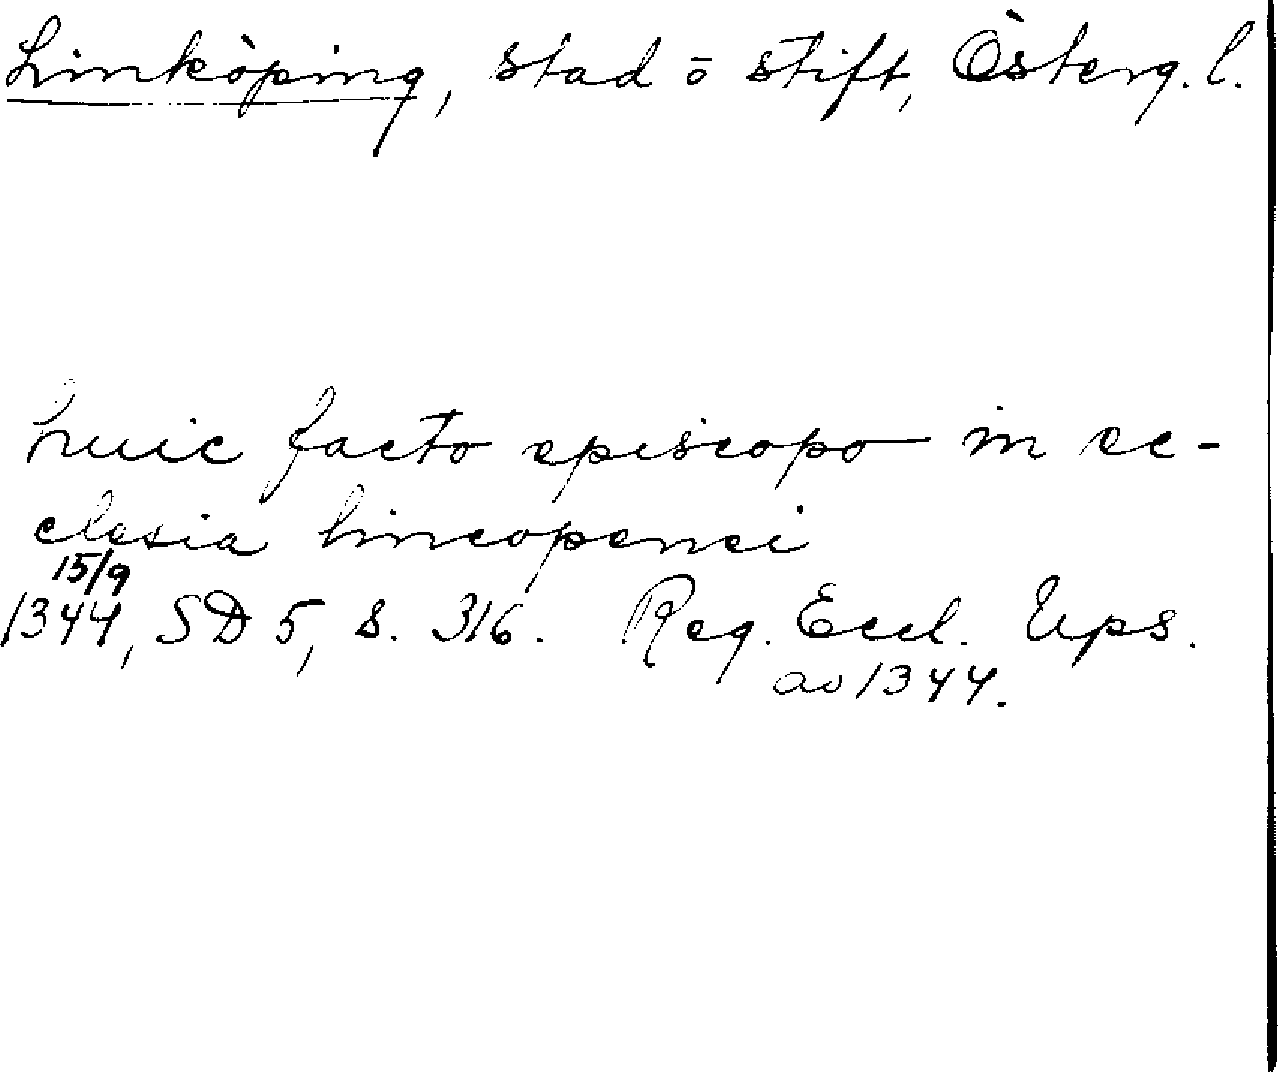 Linköping, stad ō stift, Österg. l.
huic facto episcopo in ec-
clesia lincopenci
15/9
1344, SD 5, s. 316. Reg. Eccl. Ups.
av 1344.